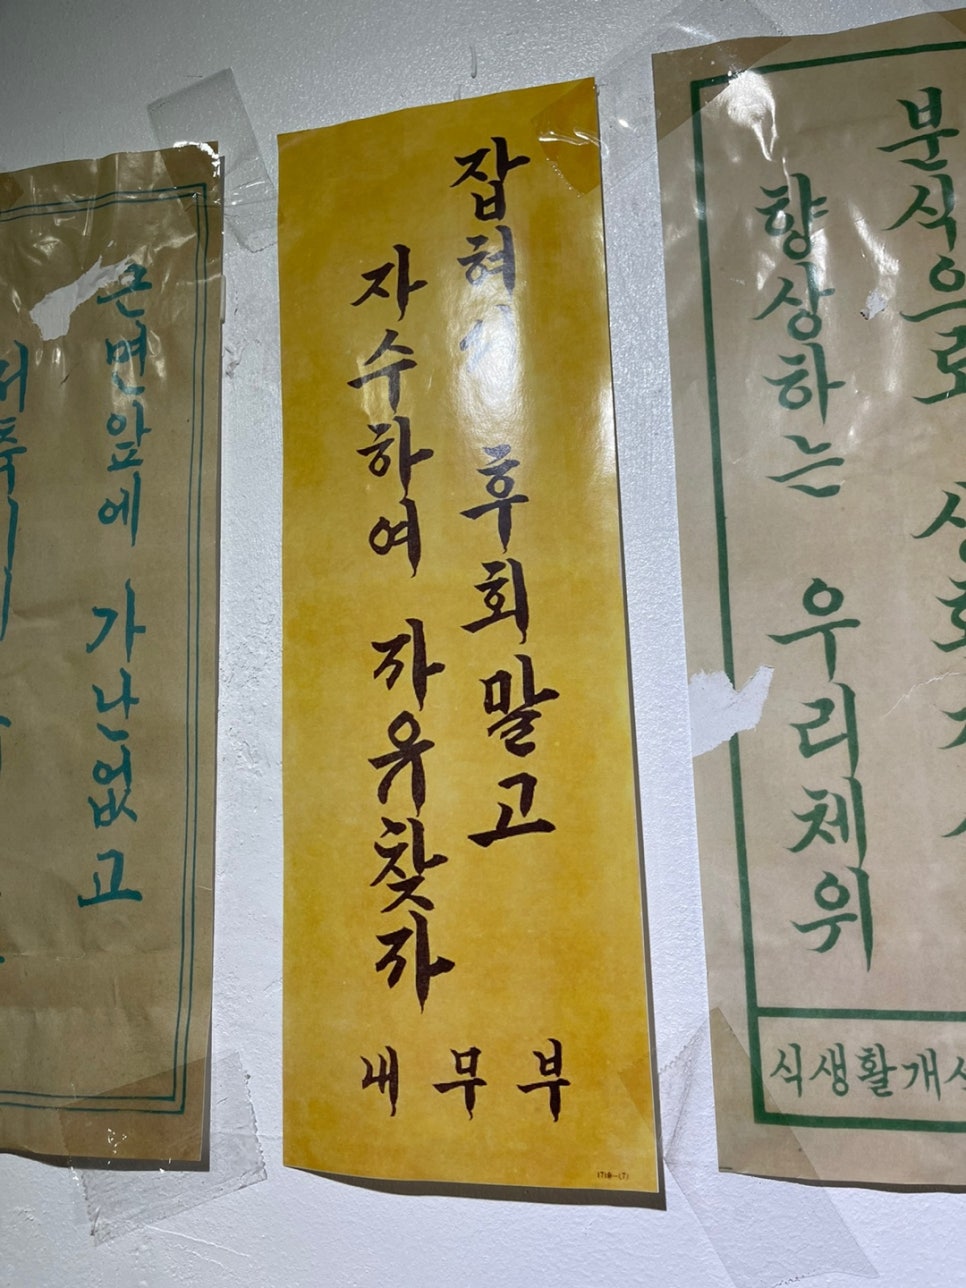 근면앞에 가난없고
잡혀서 후회말고
자수하여 자유찾자
내무부
분식으로
향상하는 우리체위
식생활개